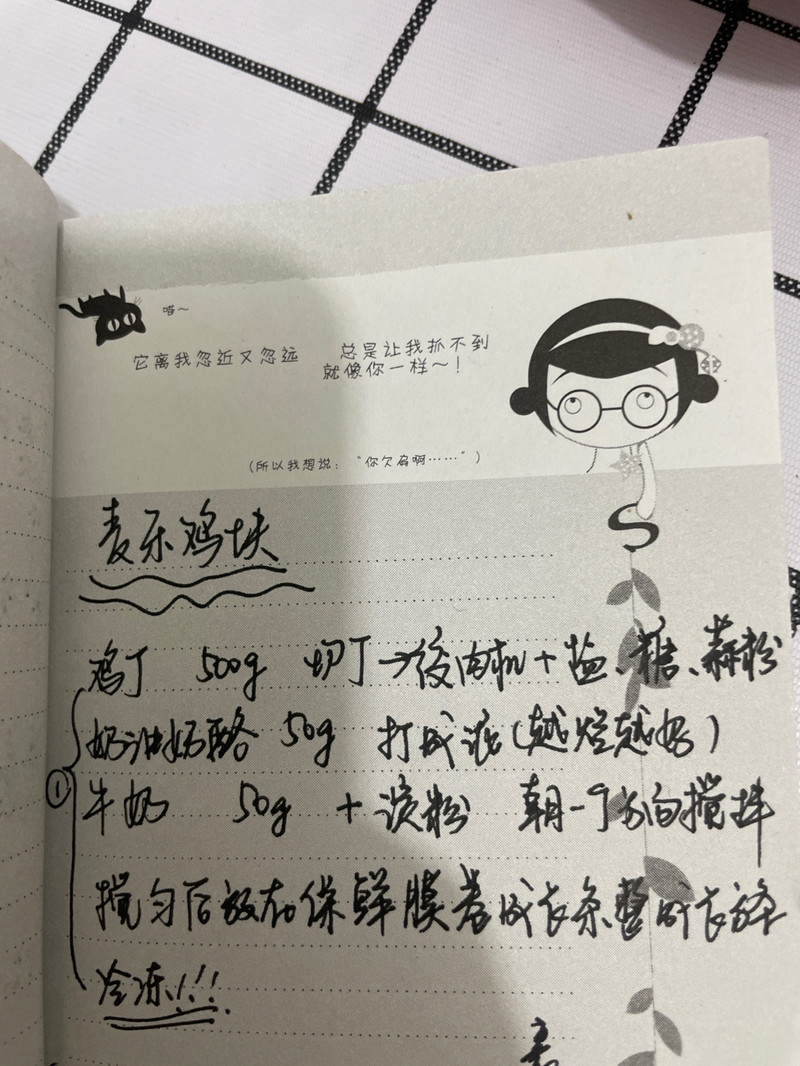 喵~
它离我忽近又忽远 总是让我抓不到
就像你一样~!
(所以我想说:“你欠扁啊……”)
麦乐鸡块
鸡丁 500g 切丁→绞肉机+盐、糖、蒜粉
奶油奶酪 50g 打成泥(越烂越好)
① 牛奶 50g +淀粉 朝一个方向搅拌
搅匀后放在保鲜膜卷成长条整成长条
冷冻!!!